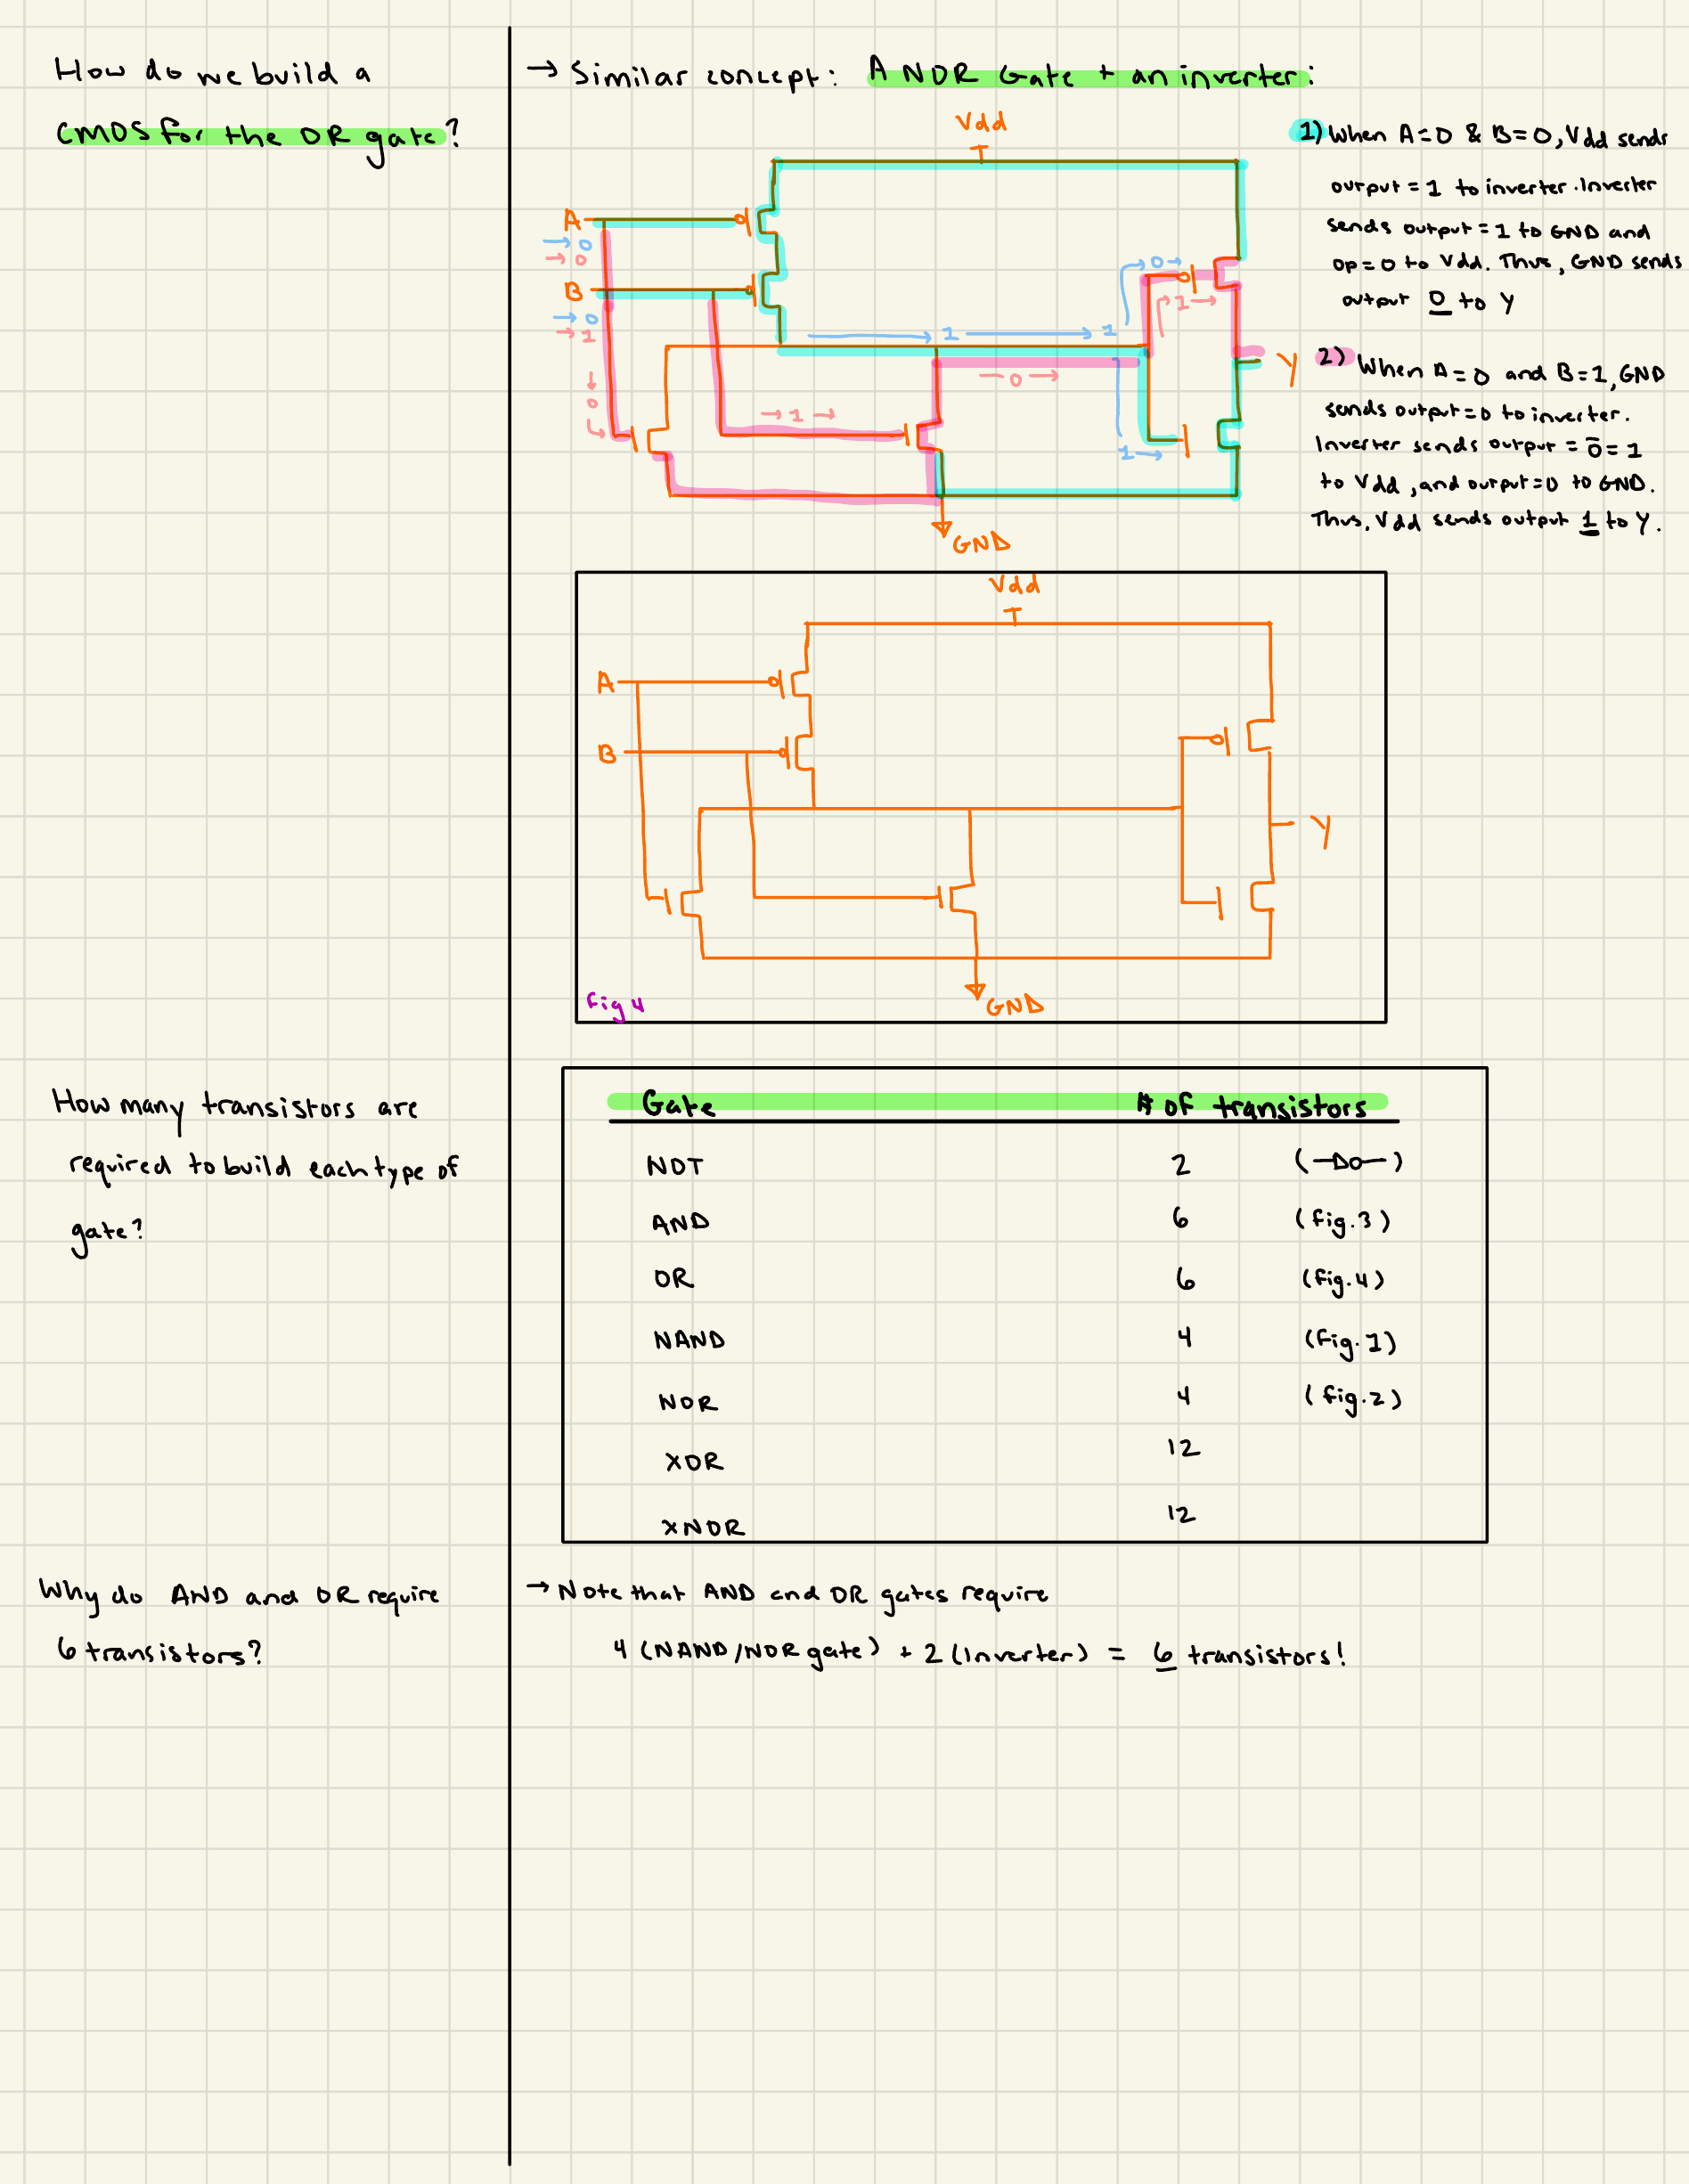 How do we build a
CMOS for the OR gate?
→ Similar concept: A NOR Gate + an inverter:
Vdd
A
→ 0
→ 0
B
→ 0
→ 1
→ 0
→ 1 →
→ 1 → 1
→ 0 →
0 →
1 →
1 →
Y
GND
1) When A=0 & B=0, Vdd sends
output = 1 to inverter. Inverter
sends output = 1 to GND and
op=0 to Vdd. Thus, GND sends
output 0 to Y
2) When A=0 and B=1, GND
sends output=0 to inverter.
Inverter sends output = 0̅ = 1
to Vdd, and output=0 to GND.
Thus, Vdd sends output 1 to Y.
Vdd
A
B
Y
GND
Fig 4
How many transistors are
required to build each type of
gate?
Gate # of transistors
NOT 2 (–▷o–)
AND 6 (fig.3)
OR 6 (fig.4)
NAND 4 (fig.1)
NOR 4 (fig.2)
XOR 12
XNOR 12
Why do AND and OR require
6 transistors?
→ Note that AND and OR gates require
4 (NAND/NOR gate) + 2 (Inverter) = 6 transistors!